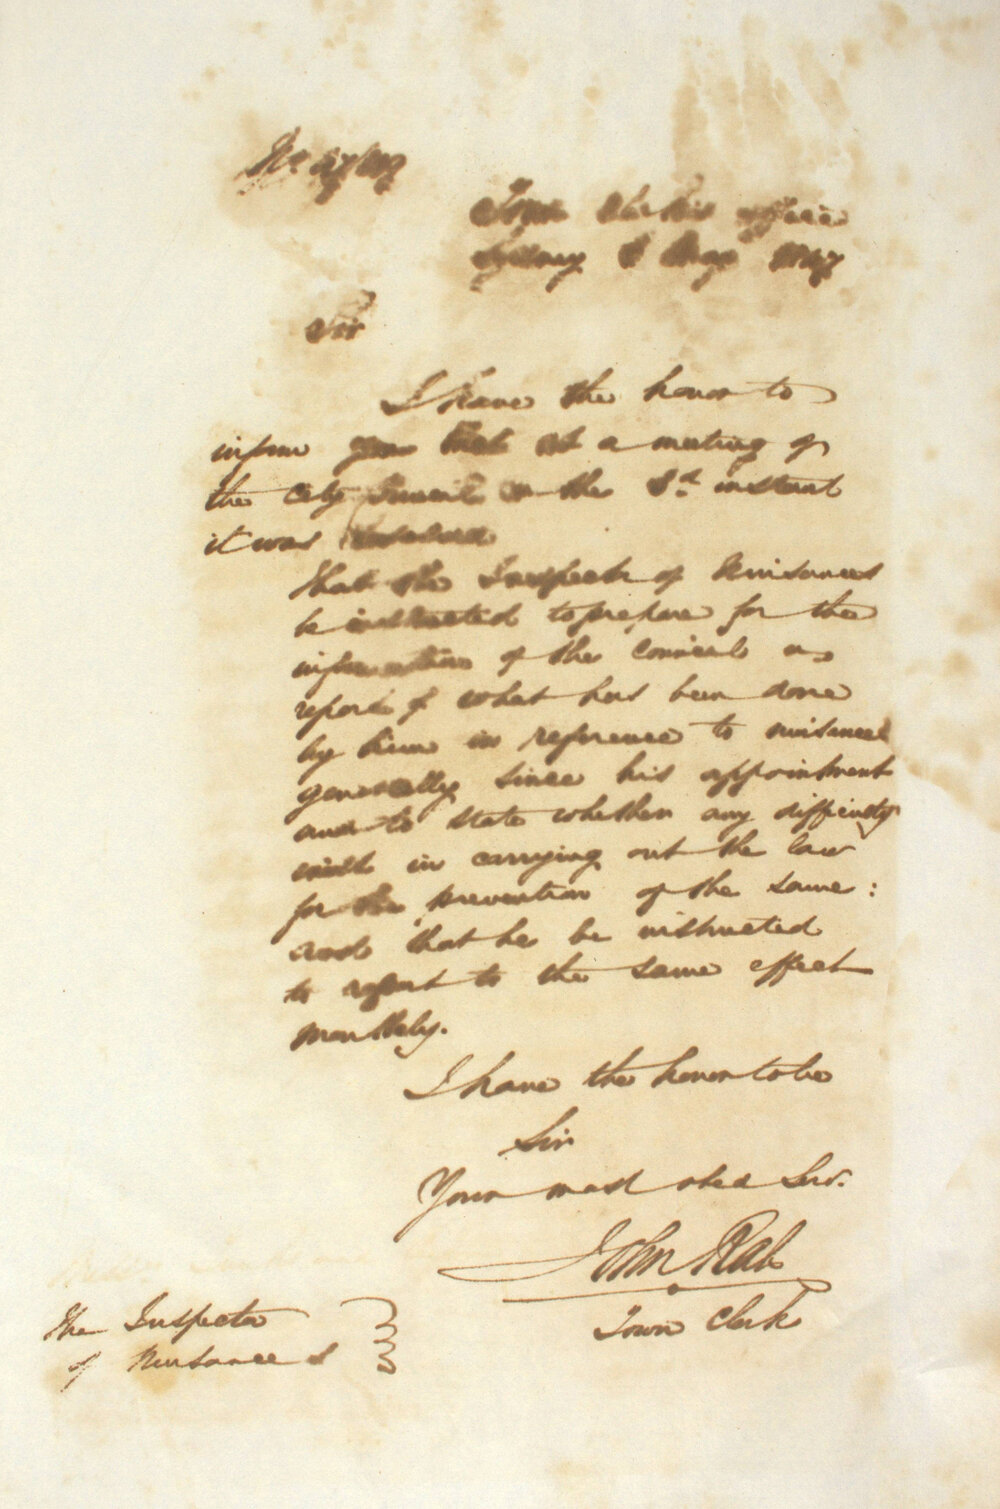 Town Clerk's Office
Sydney 8 May 1847
Sir
I have the honor to
inform you that at a meeting of
the City Council on the 3rd instant
it was Resolved
that the Inspector of Nuisances
be instructed to prepare for the
information of the Council a
report of what has been done
by him in reference to nuisances
generally since his appointment
and to state whether any difficulty
exist in carrying out the law
for the prevention of the same:
and that he be instructed
to report to the same effect
monthly.
I have the honor to be
Sir
Your most obed Serv.
John Rae
Town Clerk
The Inspector
of Nuisances